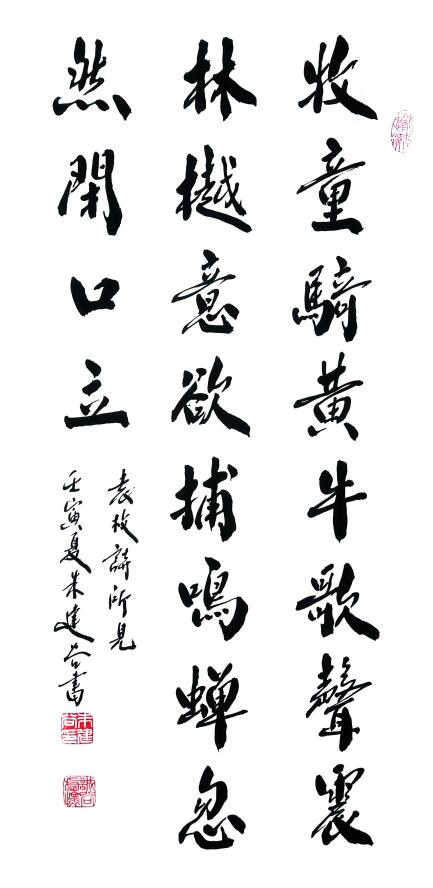 牧童騎黄牛歌聲震
林樾意欲捕鳴蝉忽
然閉口立
袁枚詩所見
壬寅夏朱建書